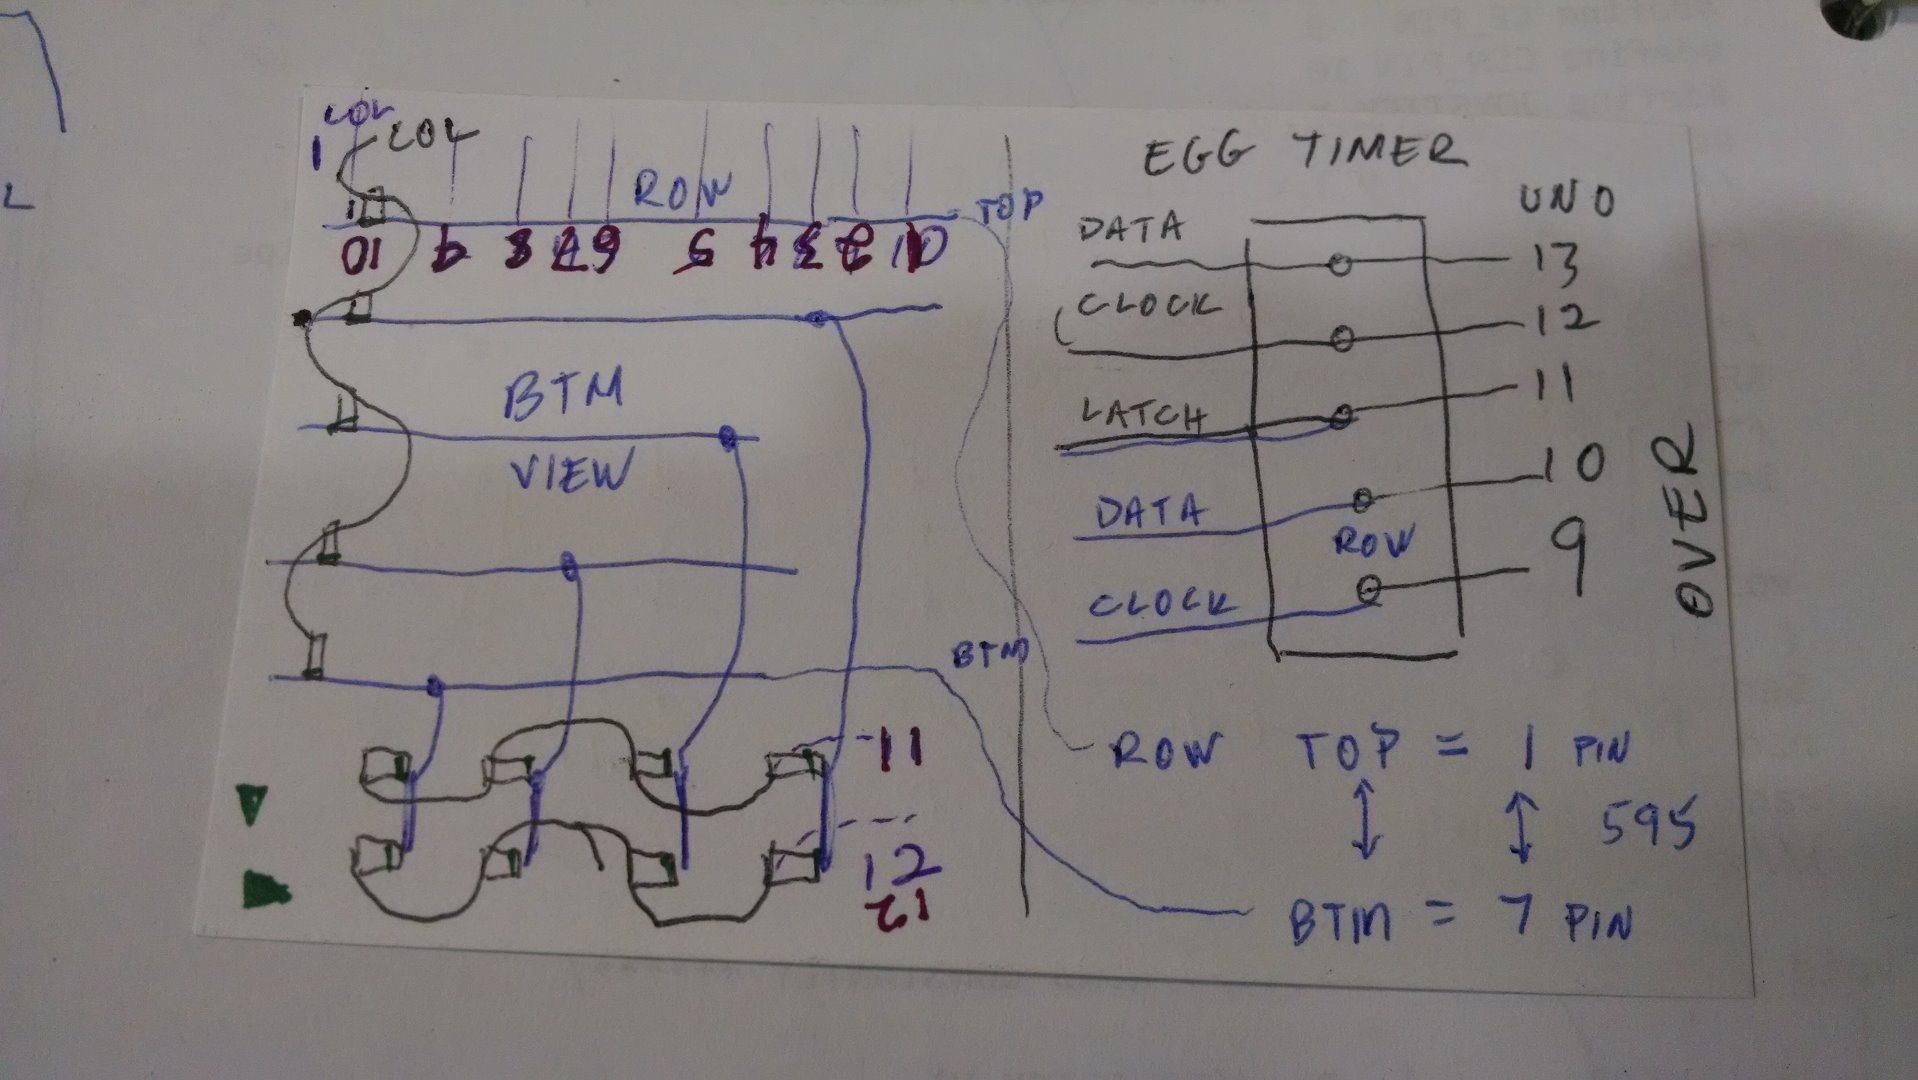 COL
1 COL
ROW
TOP
10 9 8 7 6 5 4 3 2 1
BTM
VIEW
BTM
11
12
12
EGG TIMER
UNO
DATA
13
CLOCK
12
LATCH
11
DATA
10
ROW
CLOCK
9
OVER
ROW TOP = 1 PIN
595
BTM = 7 PIN